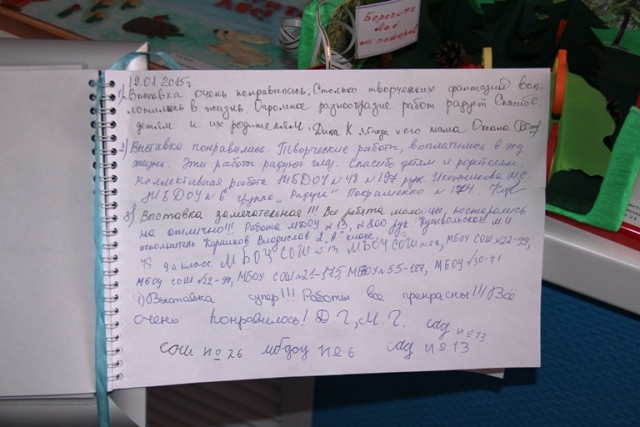 Берегите
Лес
от пожаров!
19.01.2015г
1) Выставка очень понравилась. Столько творческих фантазий воп-
лотилась в жизнь. Огромное разнообразие работ радует. Спасибо
детям и их родителям. Дима К и его мама Оксана
2) Выставка понравилась. Творческие работы, воплатились в эту
жизнь. Эти работы радуют глаз. Спасибо детям и родителям.
Коллективная работа МБДОУ №48 №197 рук.
МБДОУ №6 группа "Радуга" №174.
3) Выставка замечательная!!! Все ребята молодцы, постарались
на отлично!!! Работа МБДОУ №13, №200 рук.
исполнитель Владислав 2 "А" класс.
класс МБОУ СОШ №13, МБОУ СОШ МБОУ СОШ №22-99,
МБОУ СОШ №22-99, МБОУ СОШ №21-175, МБДОУ №55-187, МБДОУ
1) Выставка супер!!! Работы все прекрасны!!! Всё
очень понравилось! Д.Г., М.Г. сад №13
СОШ №26 мбдоу №6 сад №13